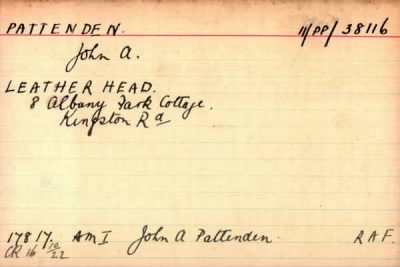 PATTENDEN. 11/PP/38116
John A.
LEATHER HEAD.
8 Albany Park Cottage.
Kingston Rd
17817/10/22 AM I John A Pattenden. RAF.
CR 16